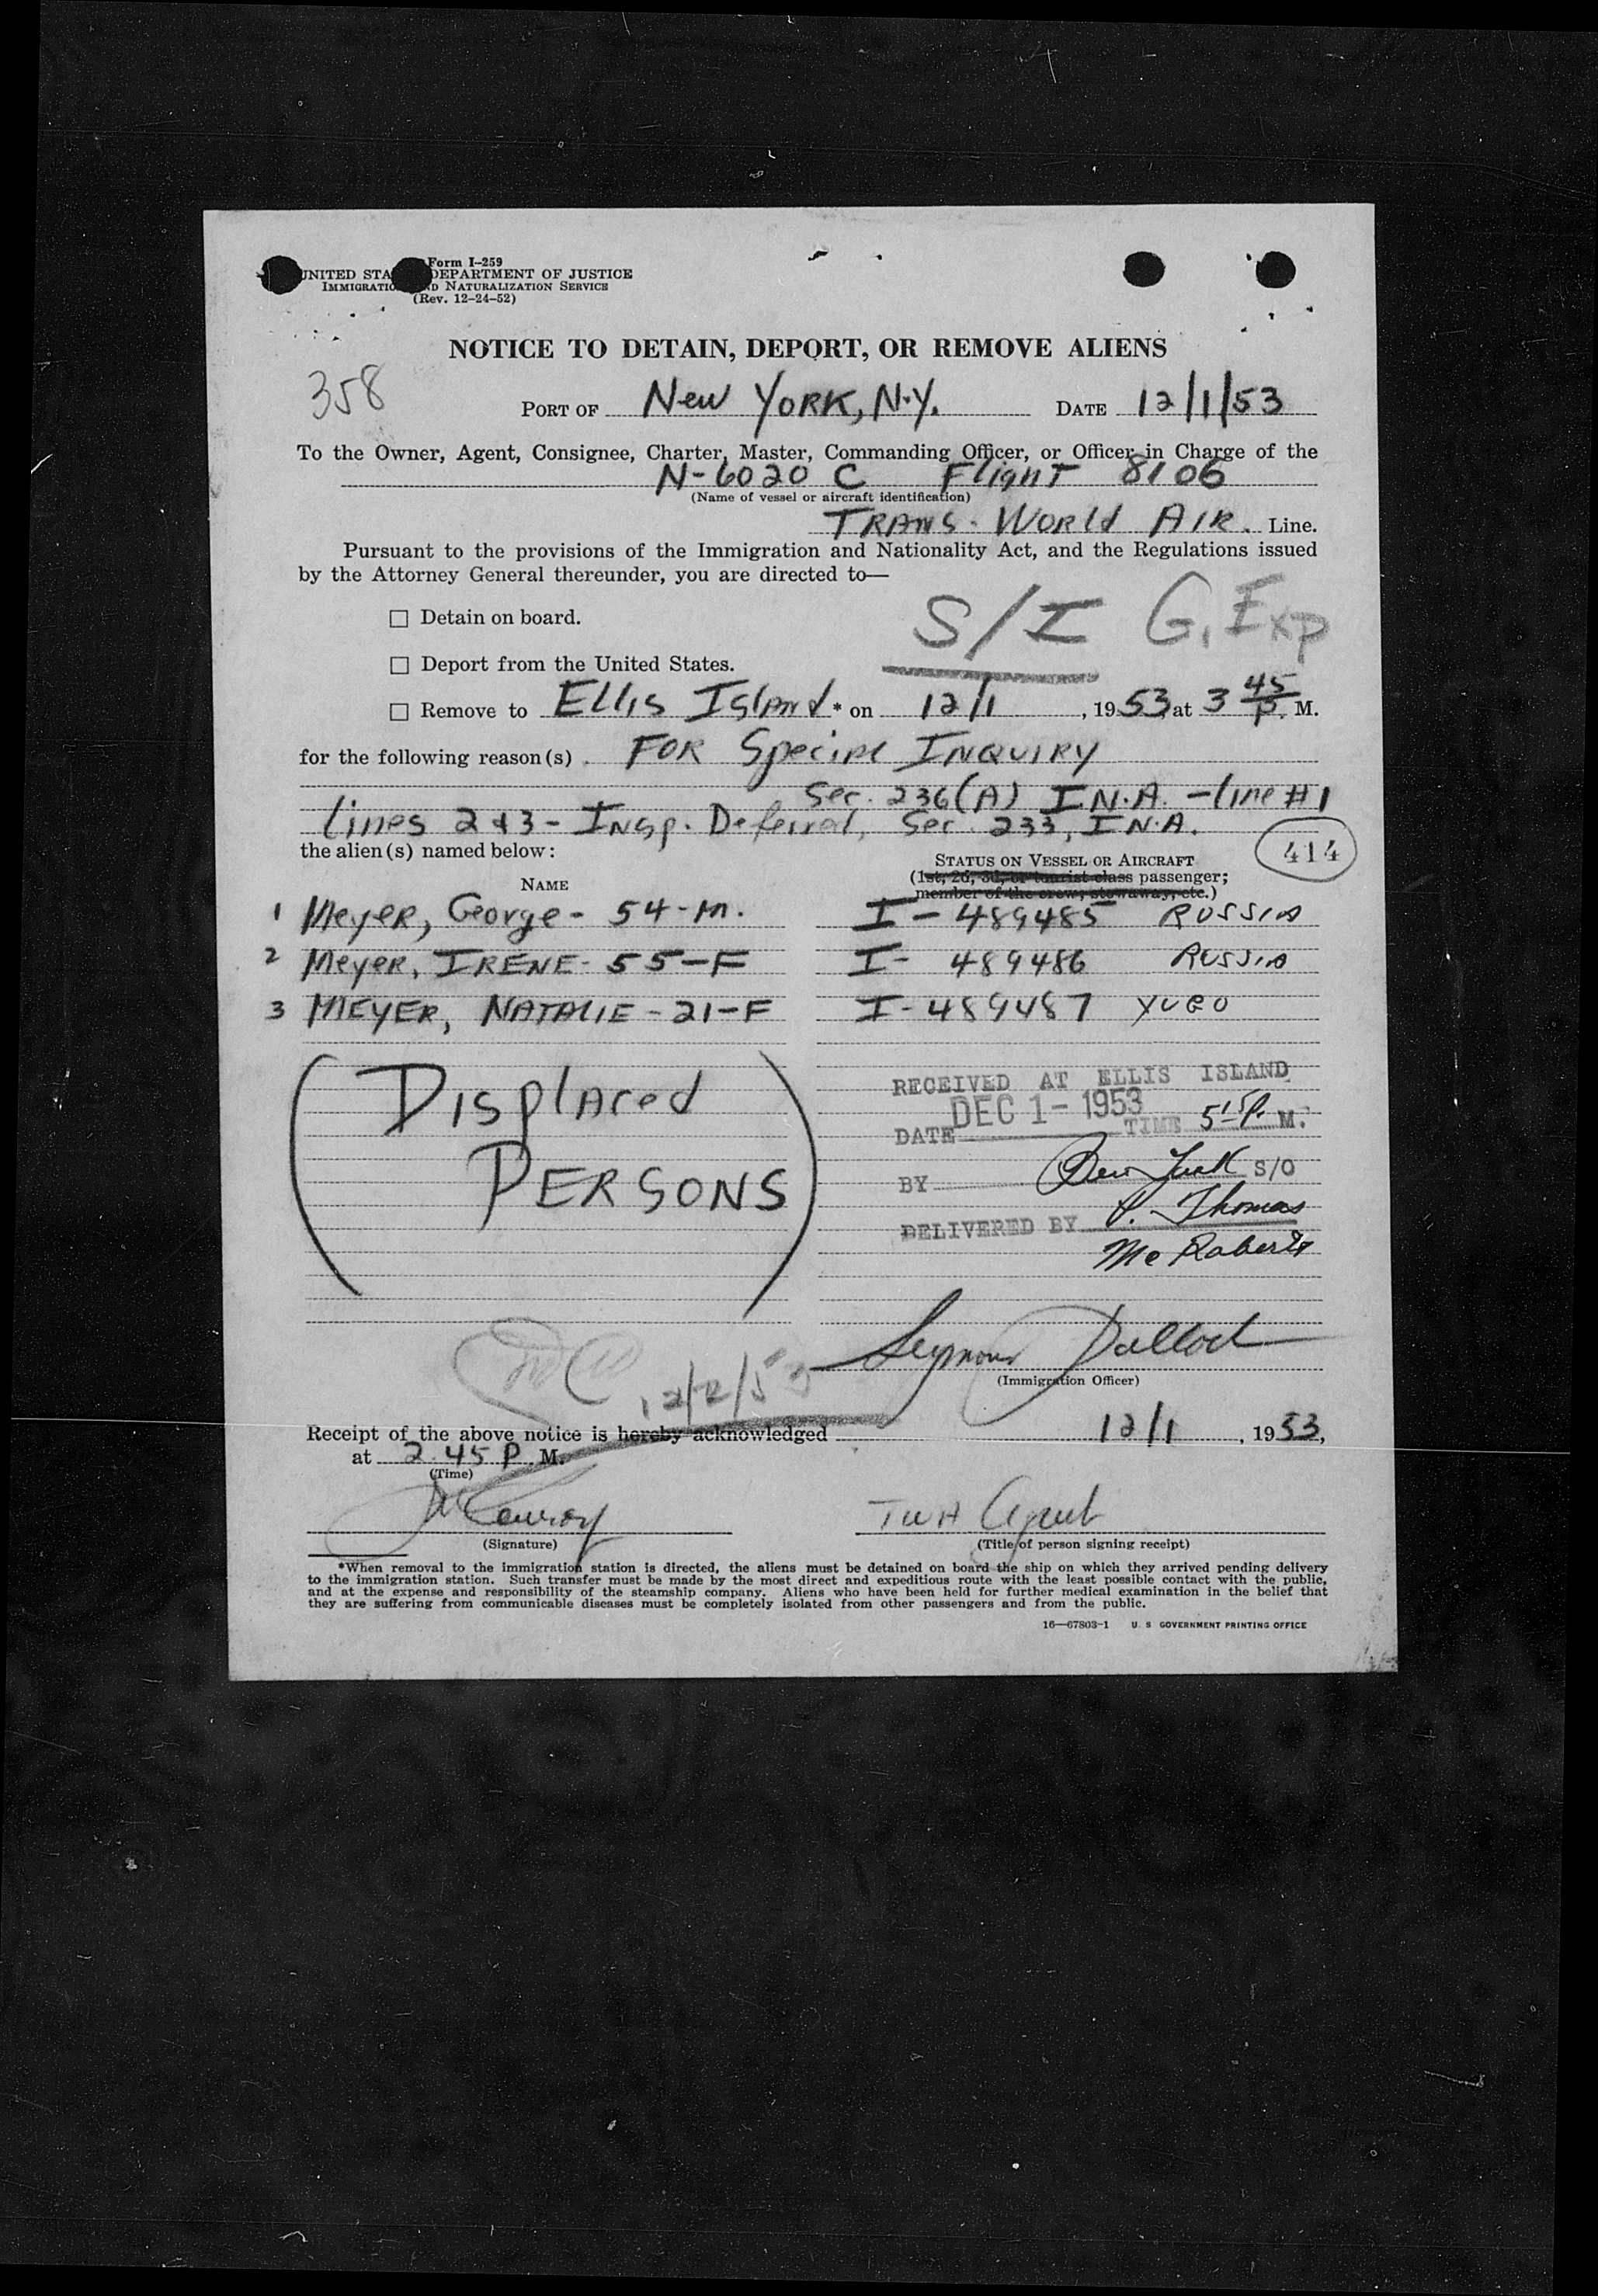 Form I-259
UNITED STA DEPARTMENT OF JUSTICE
IMMIGRATIO D NATURALIZATION SERVICE
(Rev. 12-24-52)
NOTICE TO DETAIN, DEPORT, OR REMOVE ALIENS
358
PORT OF New YORK, N.Y. DATE 12/1/53
To the Owner, Agent, Consignee, Charter, Master, Commanding Officer, or Officer in Charge of the
N-6020 C Flight 8106
(Name of vessel or aircraft identification)
TRANS. World AIR. Line.
Pursuant to the provisions of the Immigration and Nationality Act, and the Regulations issued
by the Attorney General thereunder, you are directed to—
S/I G, Exp
☐ Detain on board.
☐ Deport from the United States.
☐ Remove to Ellis Island * on 12/1, 1953 at 3 45 P. M.
for the following reason(s) FOR Special INQUIRY
Sec. 236(A) I.N.A. - line #1
lines 2 & 3 - Insp. Deferral, Sec. 233, I.N.A.
the alien(s) named below:
414
STATUS ON VESSEL OR AIRCRAFT
(1st, 2d, 3d, or tourist class passenger;
member of the crew; stowaway, etc.)
NAME
1 Meyer, George - 54-M. I-489485 RUSSIA
2 Meyer, IRENE - 55-F I- 489486 RUSSIA
3 MEYER, NATALIE - 21-F I-489487 YUGO
(Displaced
PERSONS)
RECEIVED AT ELLIS ISLAND
DATE DEC 1 - 1953 TIME 5 15 P. M.
BY S/O
DELIVERED BY P. Thomas
Mc Roberts
Seymour
(Immigration Officer)
12/2/53
Receipt of the above notice is hereby acknowledged 12/1, 1953,
at 2.45 P. M.
(Time)
TWA Agent
(Signature) (Title of person signing receipt)
*When removal to the immigration station is directed, the aliens must be detained on board the ship on which they arrived pending delivery
to the immigration station. Such transfer must be made by the most direct and expeditious route with the least possible contact with the public,
and at the expense and responsibility of the steamship company. Aliens who have been held for further medical examination in the belief that
they are suffering from communicable diseases must be completely isolated from other passengers and from the public.
16—67803-1 U. S. GOVERNMENT PRINTING OFFICE